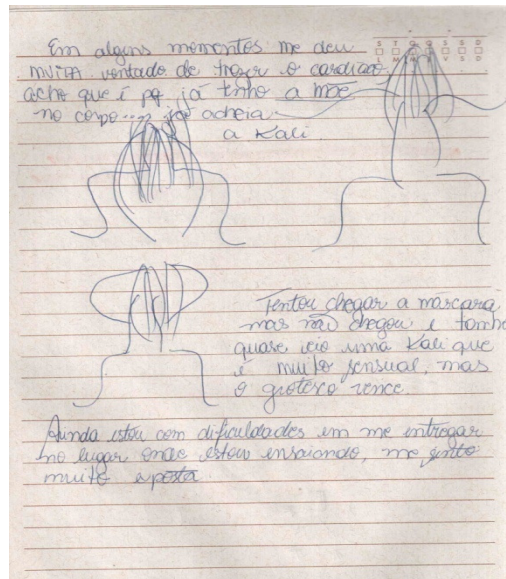 Em alguns momentos me deu
S T Q Q S S D
MUITA vontade de trazer o cardíaco,
L M M J V S D
acho que é pq já tenho a mãe
no corpo.... já achei a
a Kali
Tentou chegar a máscara,
mas não chegou e também
quase veio uma Kali que
é muito sensual, mas
o grotesco vence.
Ainda estou com dificuldades em me entregar
no lugar onde estou ensaiando, me sinto
muito